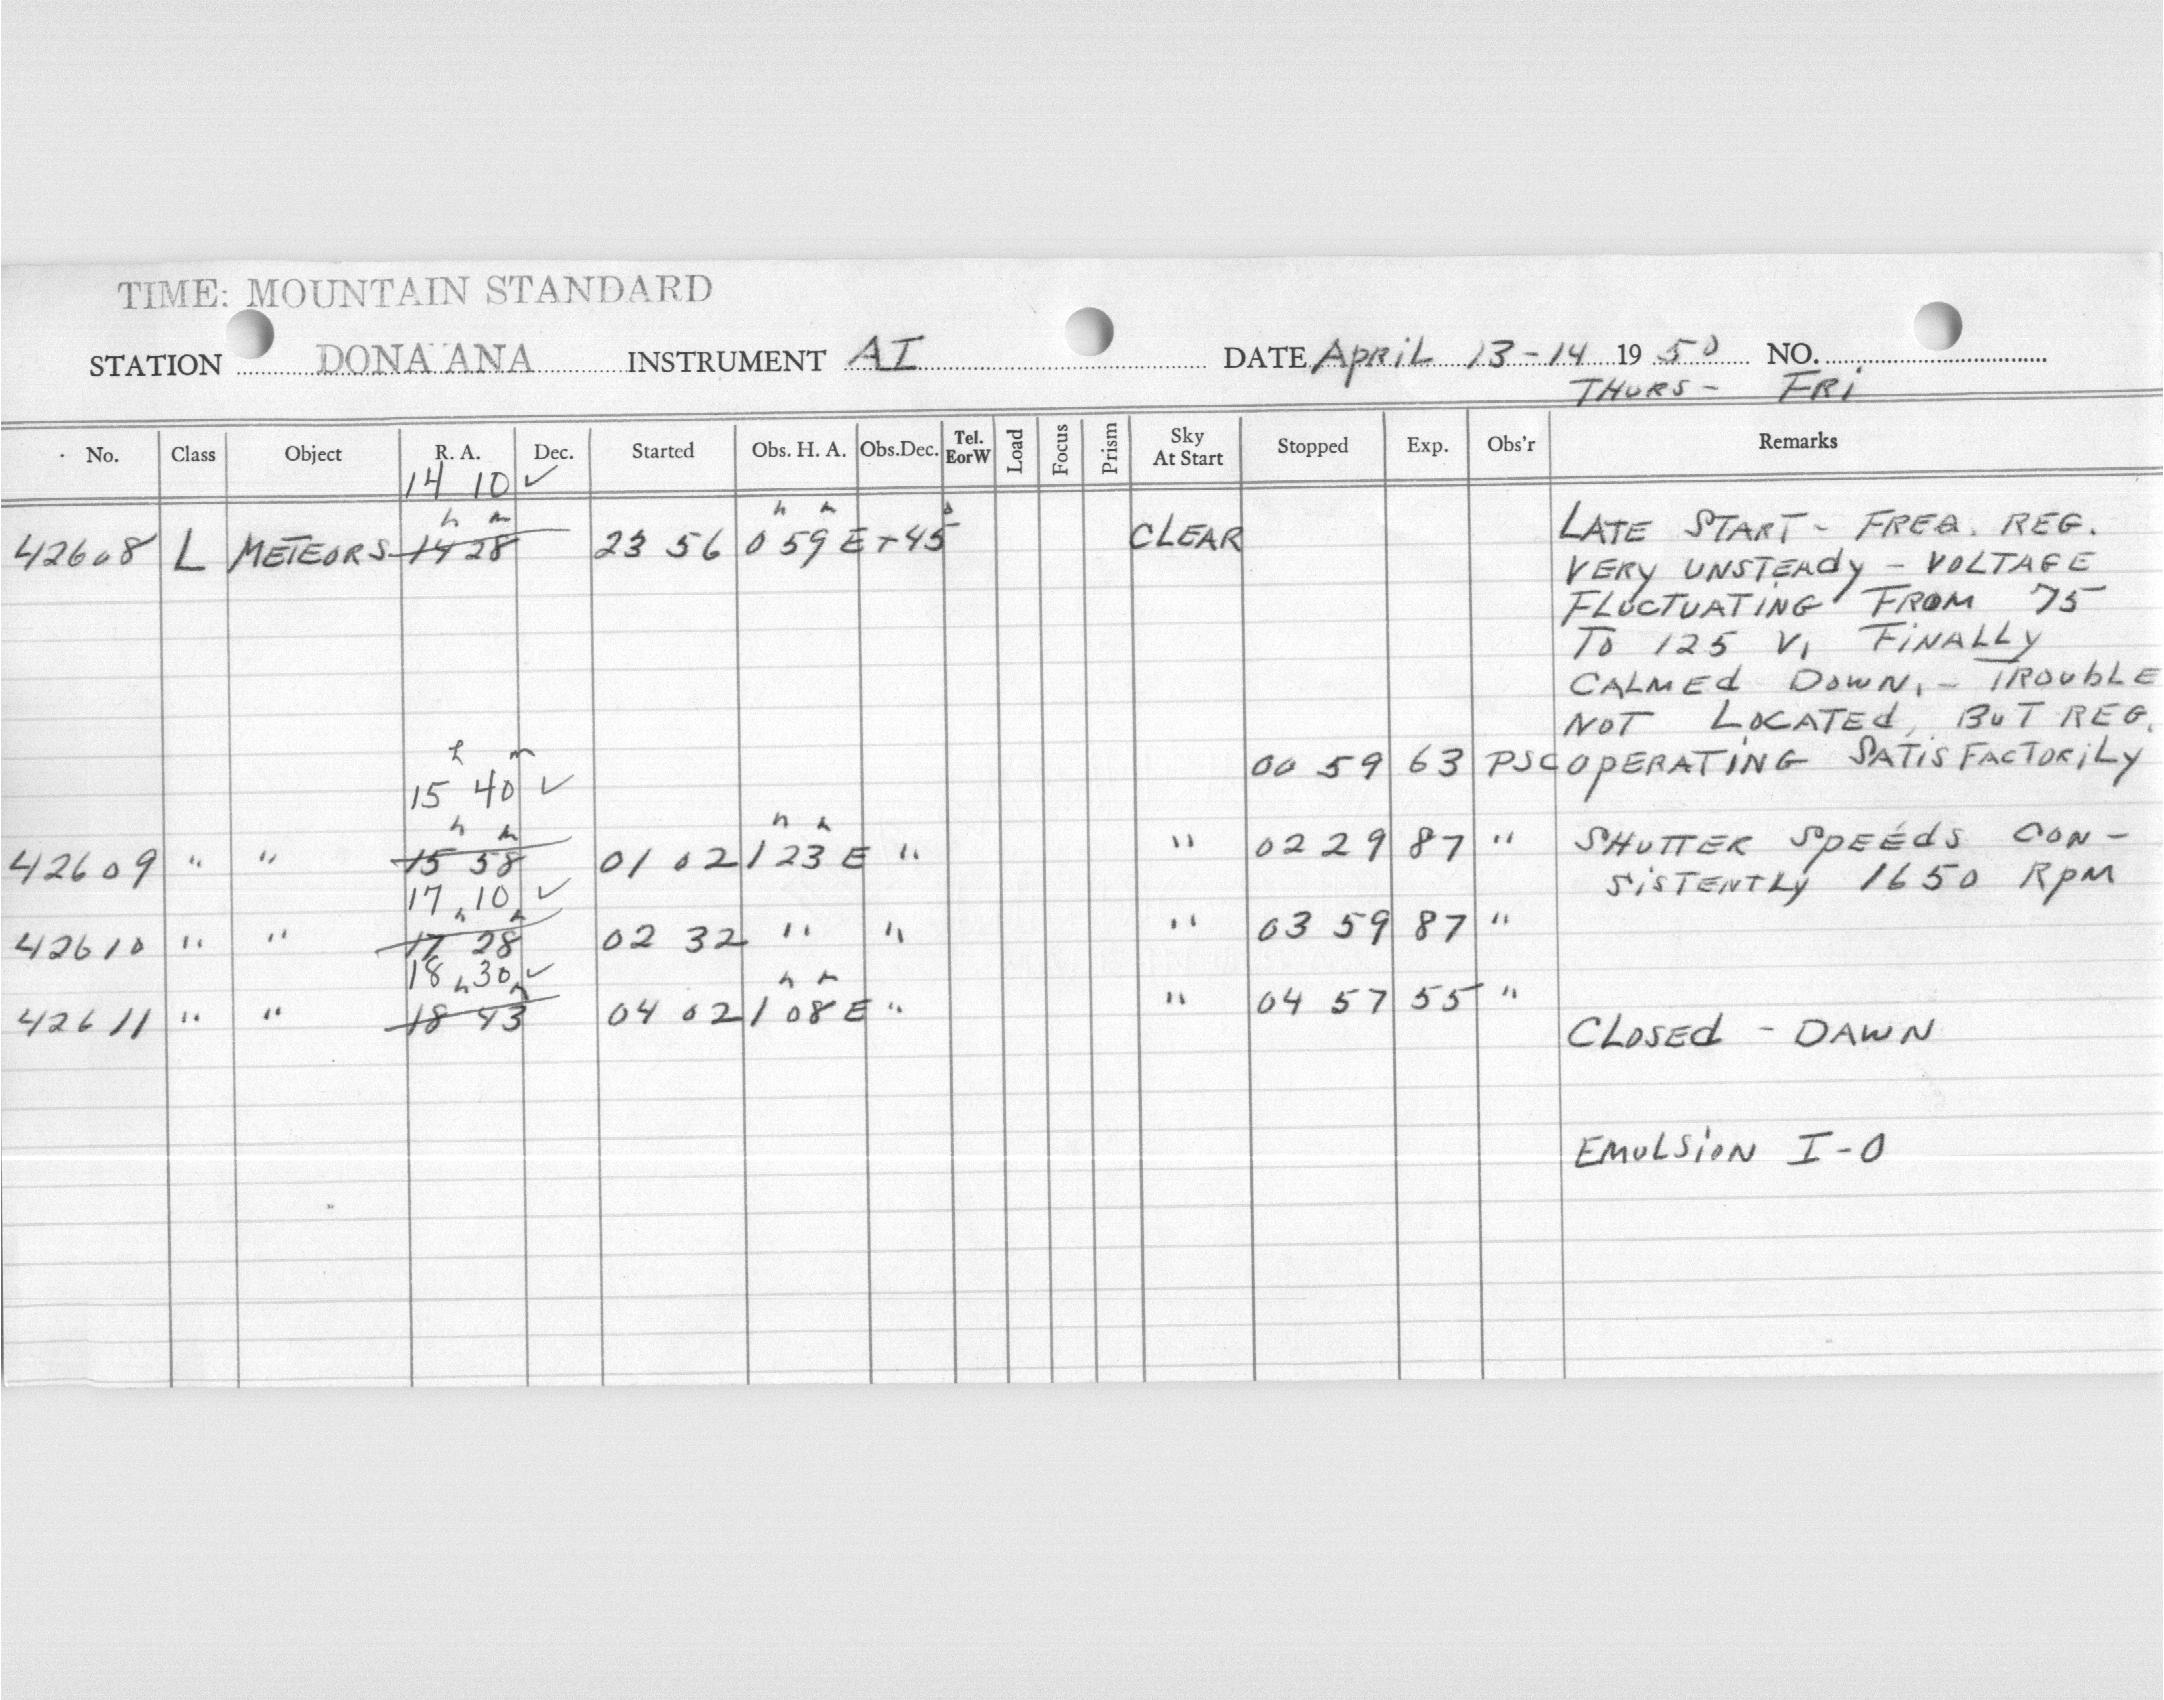 TIME: MOUNTAIN STANDARD
STATION DONA ANA INSTRUMENT AI DATE APRIL 13-14 1950 NO.
THURS- FRI
No. Class Object R. A. Dec. Started Obs. H. A. Obs.Dec. Tel. EorW Load Focus Prism Sky At Start Stopped Exp. Obs'r Remarks
14 10 ✓
42608 L METEORS 14h 28m 23 56 0h 59m E +45° CLEAR LATE START - FREQ. REG.
VERY UNSTEADY - VOLTAGE
FLUCTUATING FROM 75
TO 125 V. FINALLY
CALMED DOWN. - TROUBLE
NOT LOCATED, BUT REG.
00 59 63 PSC OPERATING SATISFACTORILY
15h 40m ✓
42609 " " 15h 58m 01 02 1h 23m E " " 02 29 87 " SHUTTER SPEEDS CON-
SISTENTLY 1650 RPM
17 10 ✓
42610 " " 17h 28m 02 32 " " " 03 59 87 "
18 30 ✓
42611 " " 18h 43m 04 02 1h 08m E " " 04 57 55 "
CLOSED - DAWN
EMULSION I-O